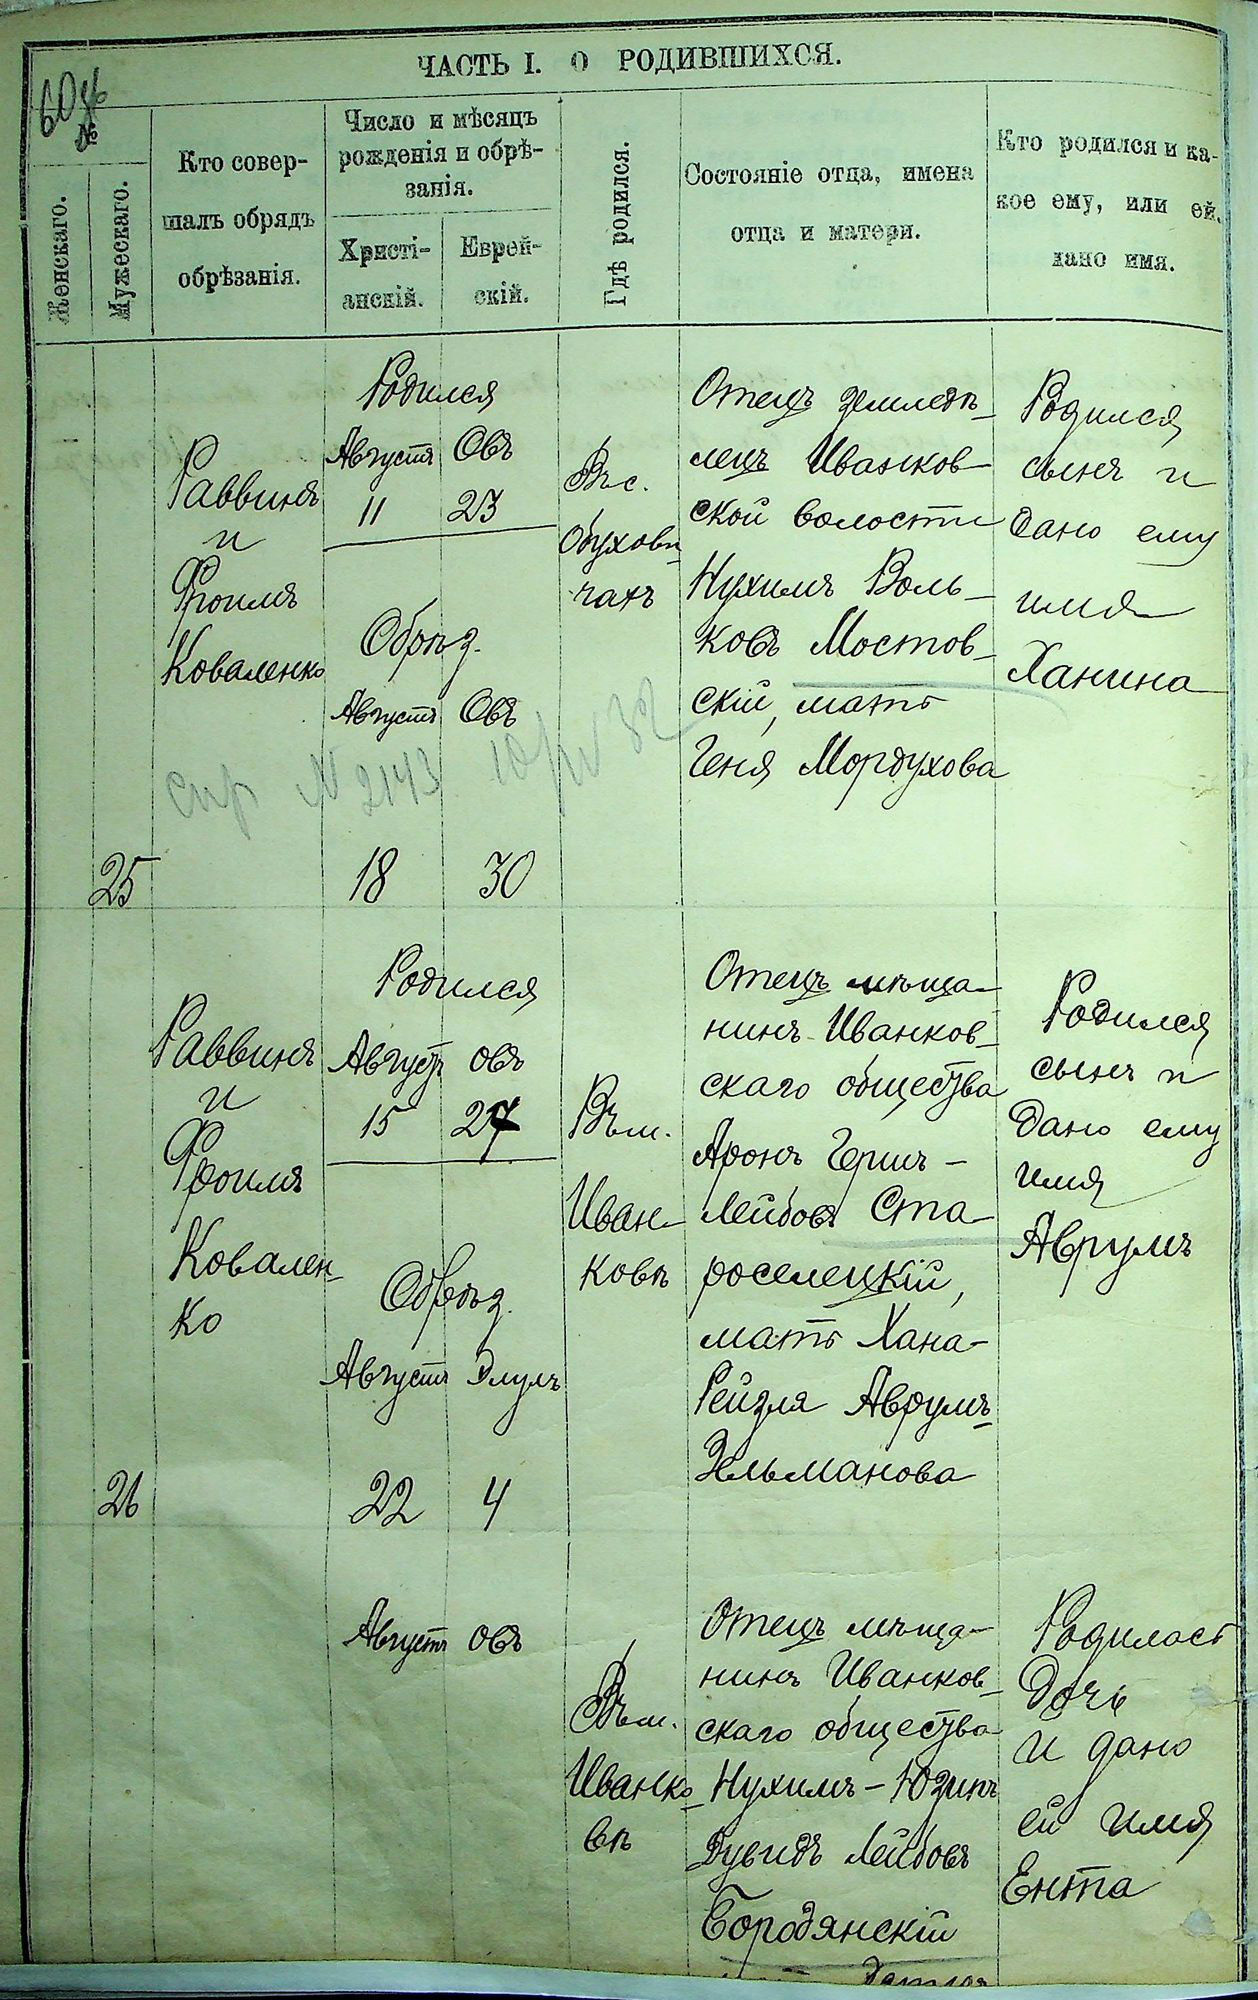 ЧАСТЬ I. О РОДИВШИХСЯ.
60 об
№
Женскаго.
Мужескаго.
Кто совер-
шалъ обрядъ
обрѣзанія.
Число и мѣсяцъ
рожденія и обрѣ-
занія.
Христі-
анскій.
Еврей-
скій.
Гдѣ родился.
Состояніе отца, имена
отца и матери.
Кто родился и ка-
кое ему, или ей,
дано имя.
25
Раввинъ
и
Фроимъ
Коваленко
Родился
Августъ Овъ
11 23
Обрѣз.
Августъ Овъ
18 30
Въ с.
Обухови-
чахъ
Отецъ земледѣ-
лецъ Иванков-
ской волости
Нухимъ Воль-
ковъ Мостов-
скій, мать
Геня Мордухова
Родился
сынъ и
дано ему
имя
Ханина
спр N 2143
26
Раввинъ
и
Фроимъ
Ковален-
ко
Родился
Августъ овъ
15 27
Обрѣз.
Августъ Элулъ
22 4
Въ м.
Иван-
ковѣ
Отецъ мѣща-
нинъ Иванков-
скаго общества
Аронъ Герш-
Лейбовъ Ста-
роселецкій,
мать Хана-
Рейзля Аврумъ-
Зельманова
Родился
сынъ и
дано ему
имя
Аврумъ
Августъ овъ
Въ м.
Иванко-
вѣ
Отецъ мѣща-
нинъ Иванков-
скаго общества
Нухимъ-Юзипъ
Дувидъ Лейбовъ
Бородянскій
Родилась
дочь
и дано
ей имя
Ента